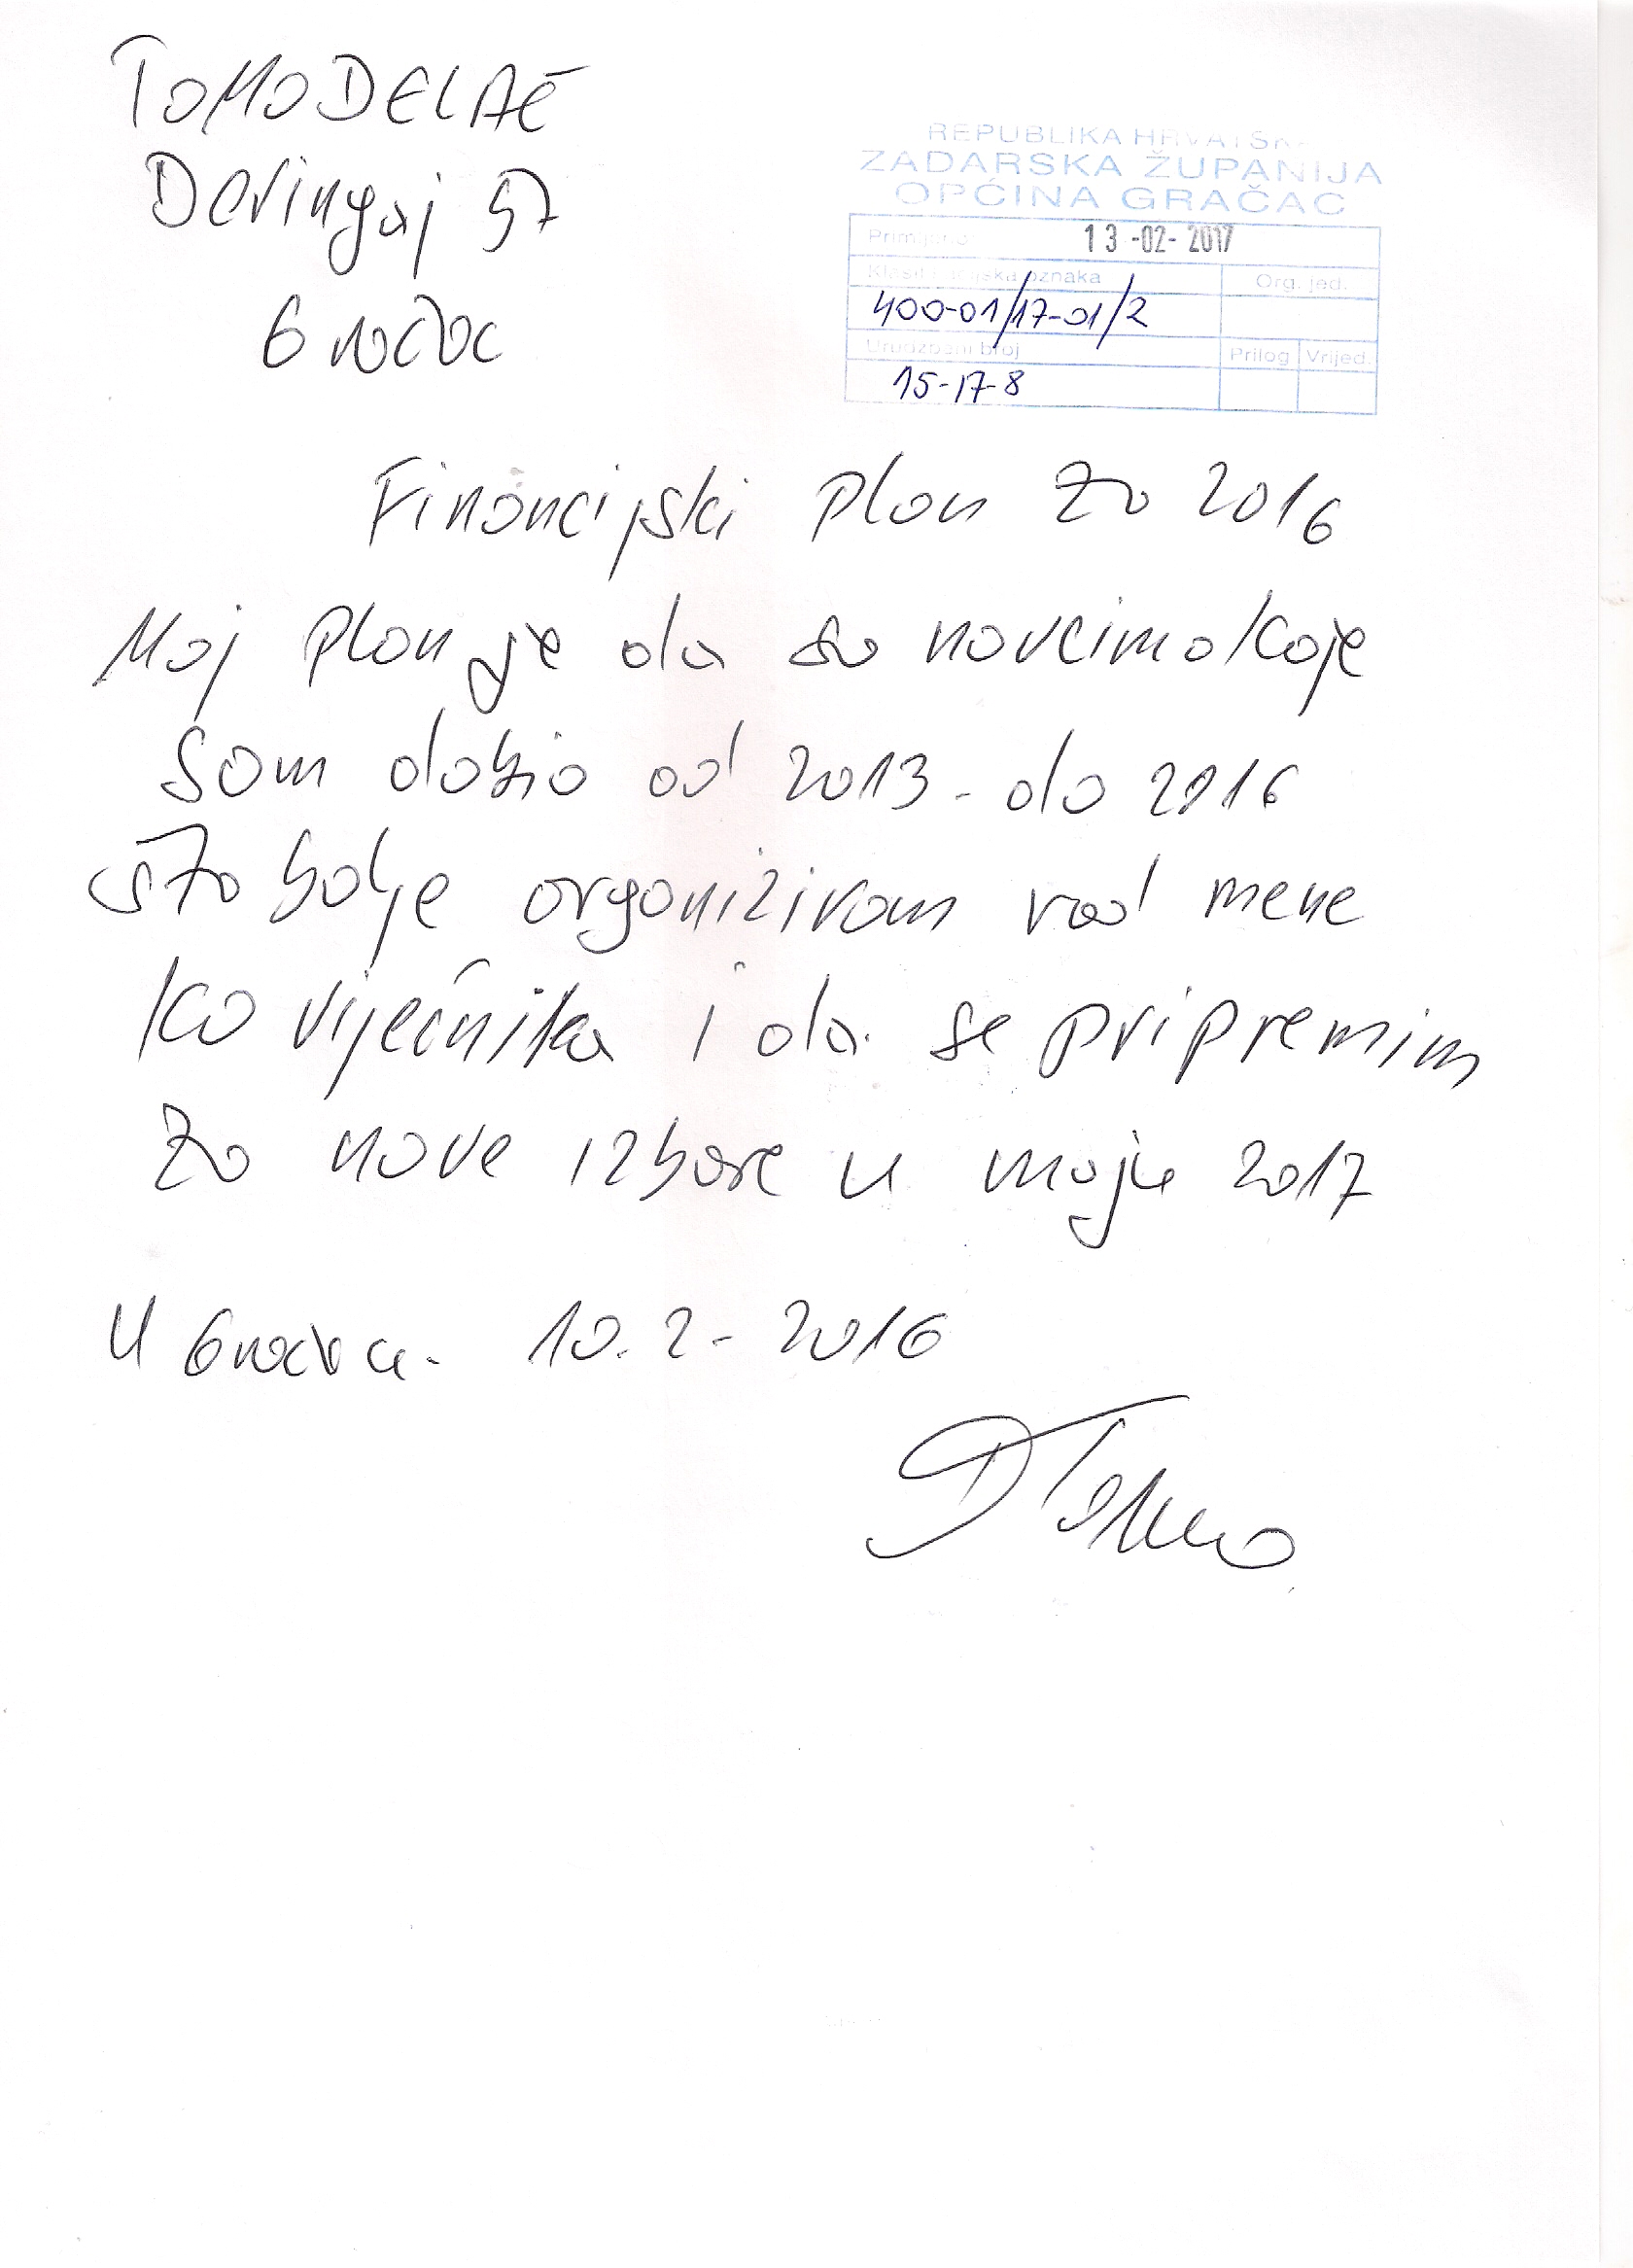 TOMO DELAČ
Deringaj 57
Gračac
REPUBLIKA HRVATSK
ZADARSKA ŽUPANIJA
OPĆINA GRAČAC
Primljeno: 13-02-2017
Klasifikacijska oznaka Org. jed.
400-01/17-01/2
Urudžbeni broj Prilog Vrijed.
15-17-8
Financijski plan za 2016
Moj plan je da sa novcima koje
sam dobio od 2013- do 2016
što bolje organiziram rad mene
ko viječnika i da se pripremim
za nove izbore u maju 2017
U Gračacu. 10.2-2016
D Tomo